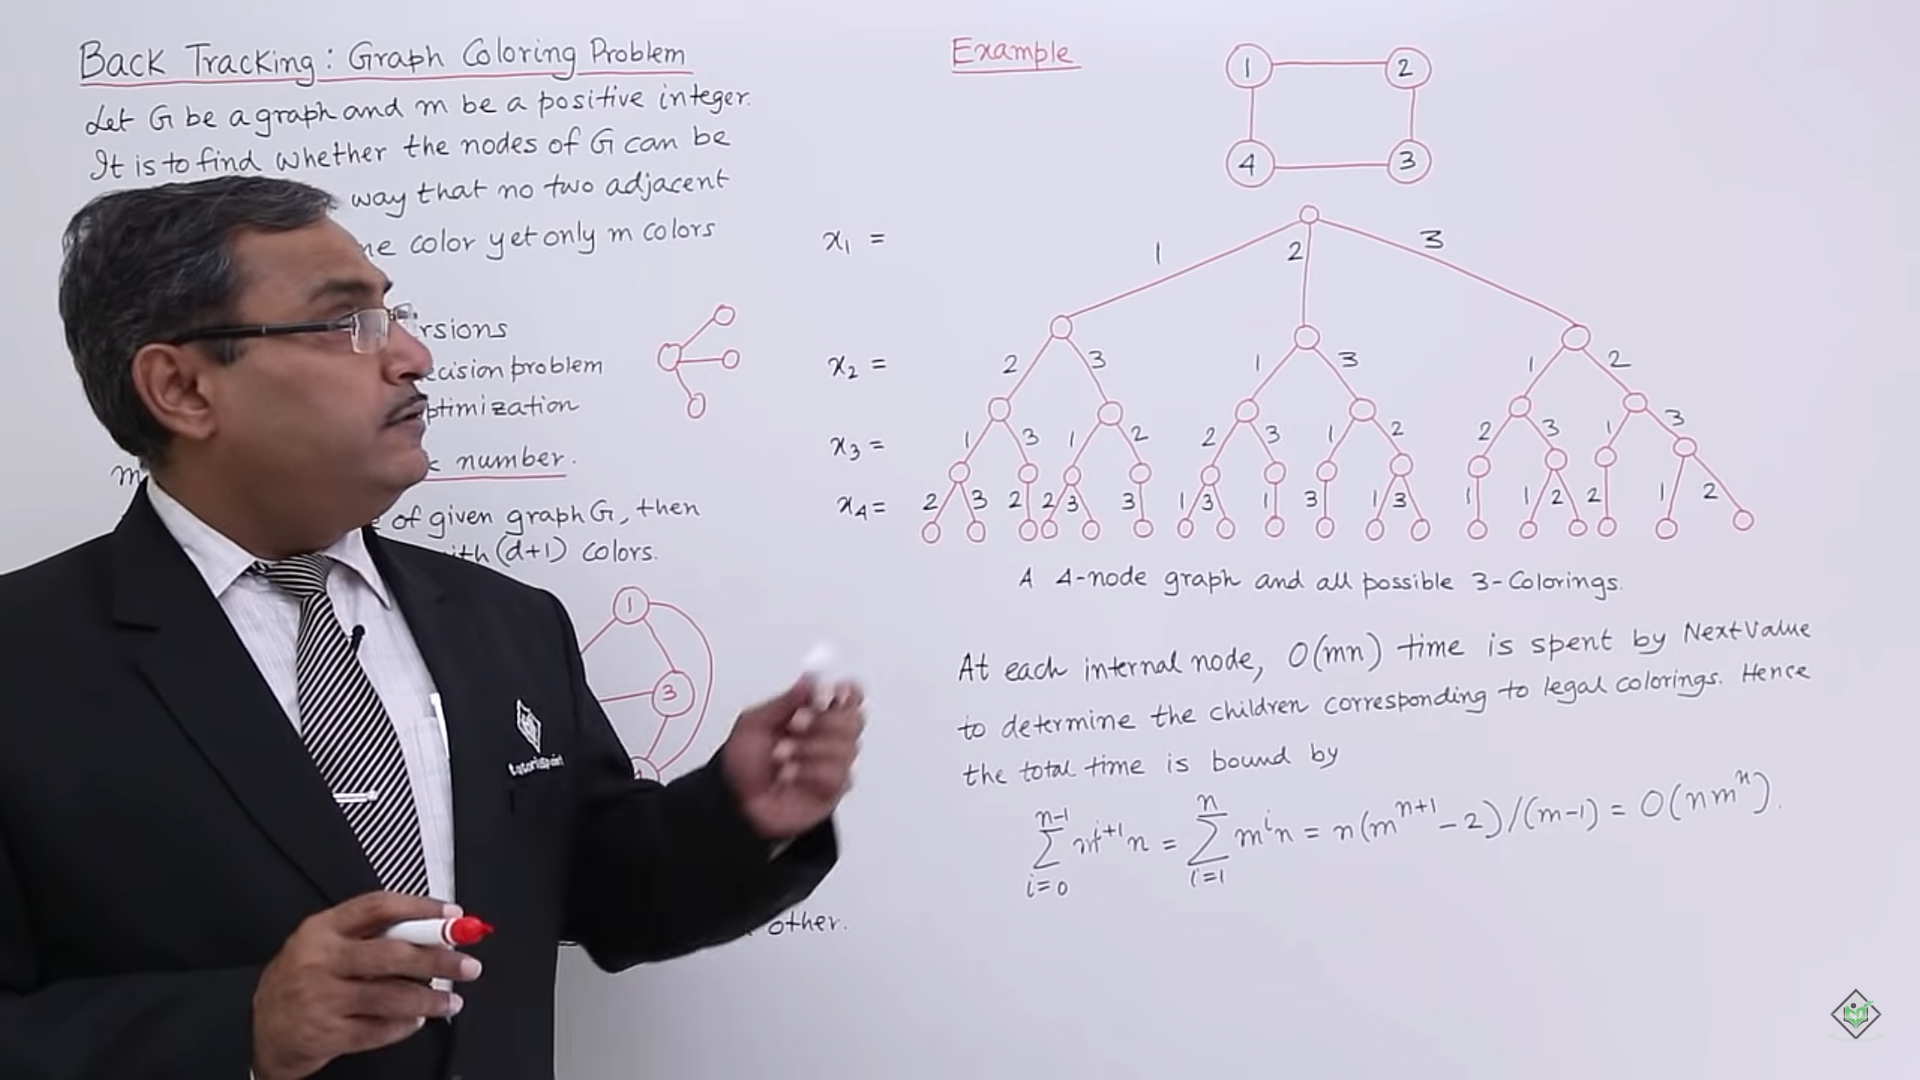 Back Tracking: Graph Coloring Problem
Let G be a graph and m be a positive integer.
It is to find whether the nodes of G can be
way that no two adjacent
color yet only m colors
problem
number.
of given graph G, then
(d+1) colors.
1
3
other.
tutorialspoint
Example
1 2
4 3
x1 = 1 2 3
x2 = 2 3 1 3 1 2
x3 = 1 3 1 2 2 3 1 2 2 3 1 3
x4 = 2 3 2 2 3 3 1 3 1 3 1 3 1 1 2 2 1 2
A 4-node graph and all possible 3-Colorings.
At each internal node, O(mn) time is spent by NextValue
to determine the children corresponding to legal colorings. Hence
the total time is bound by
n-1 ∑ i=0 m^{i+1} n = n ∑ i=1 m^i n = n(m^{n+1} - 2)/(m-1) = O(nm^n).